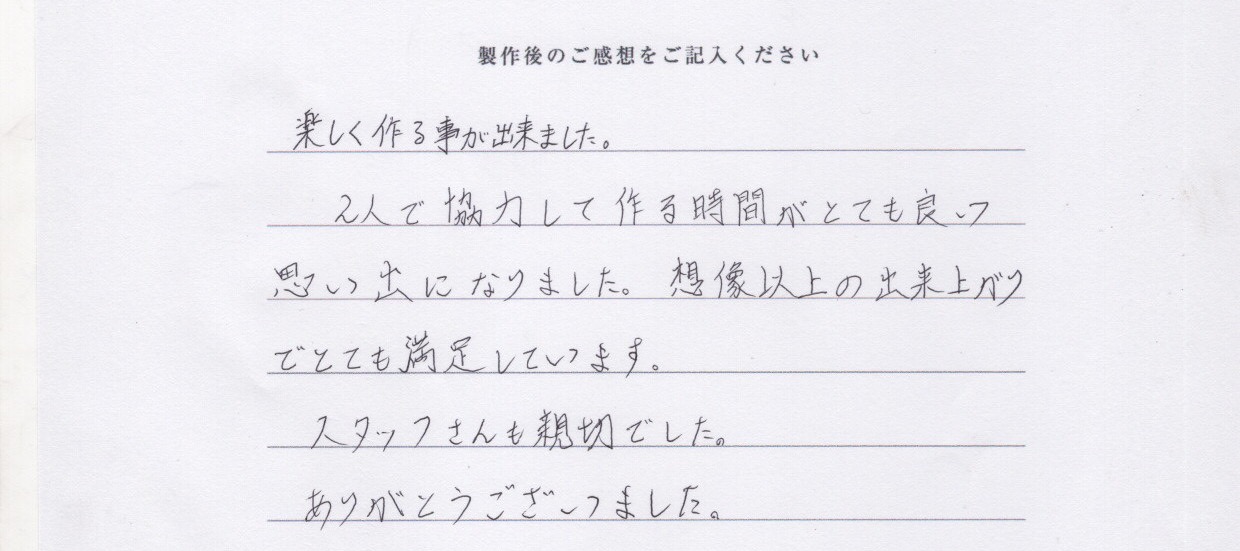 製作後のご感想をご記入ください
楽しく作る事が出来ました。
2人で協力して作る時間がとても良い
思い出になりました。想像以上の出来上がり
でとても満足しています。
スタッフさんも親切でした。
ありがとうございました。